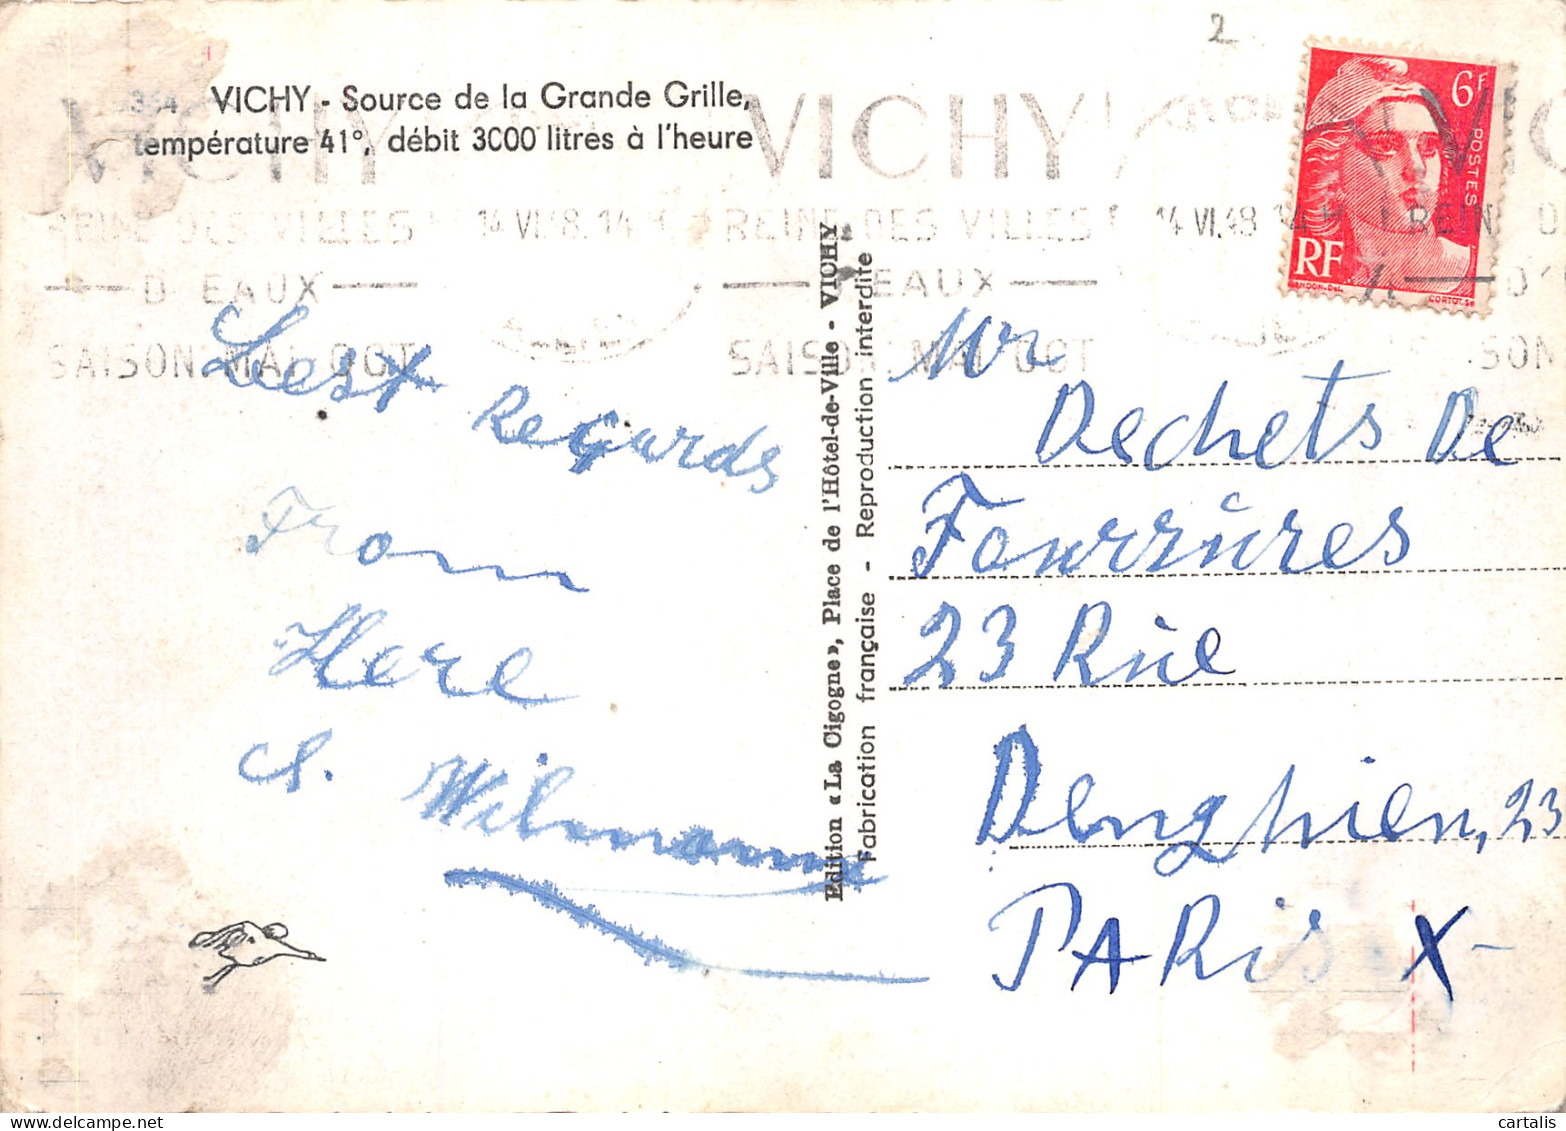 2
VICHY - Source de la Grande Grille,
température 41°, débit 3000 litres à l'heure
6F
POSTES
RF
CORTOT.SC
VICHY
REINE DES VILLES
D'EAUX
SAISON MAI OCT
14 VI.48. 14 H
VICHY
REINE DES VILLES
D'EAUX
SAISON MAI OCT
14 VI.48 14 H
REINE
Best Regards
From
Here
Wilmanns
Edition «La Cigogne», Place de l'Hôtel-de-Ville - VICHY
Fabrication française - Reproduction interdite
Mr
Dechets De
Fourrures
23 Rue
Denghien, 23
PARis X
cartalis